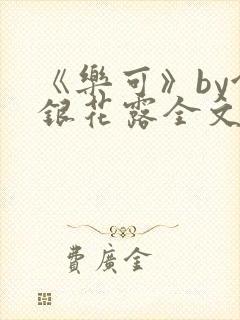 《樂可》by
銀花露全文
費廣金